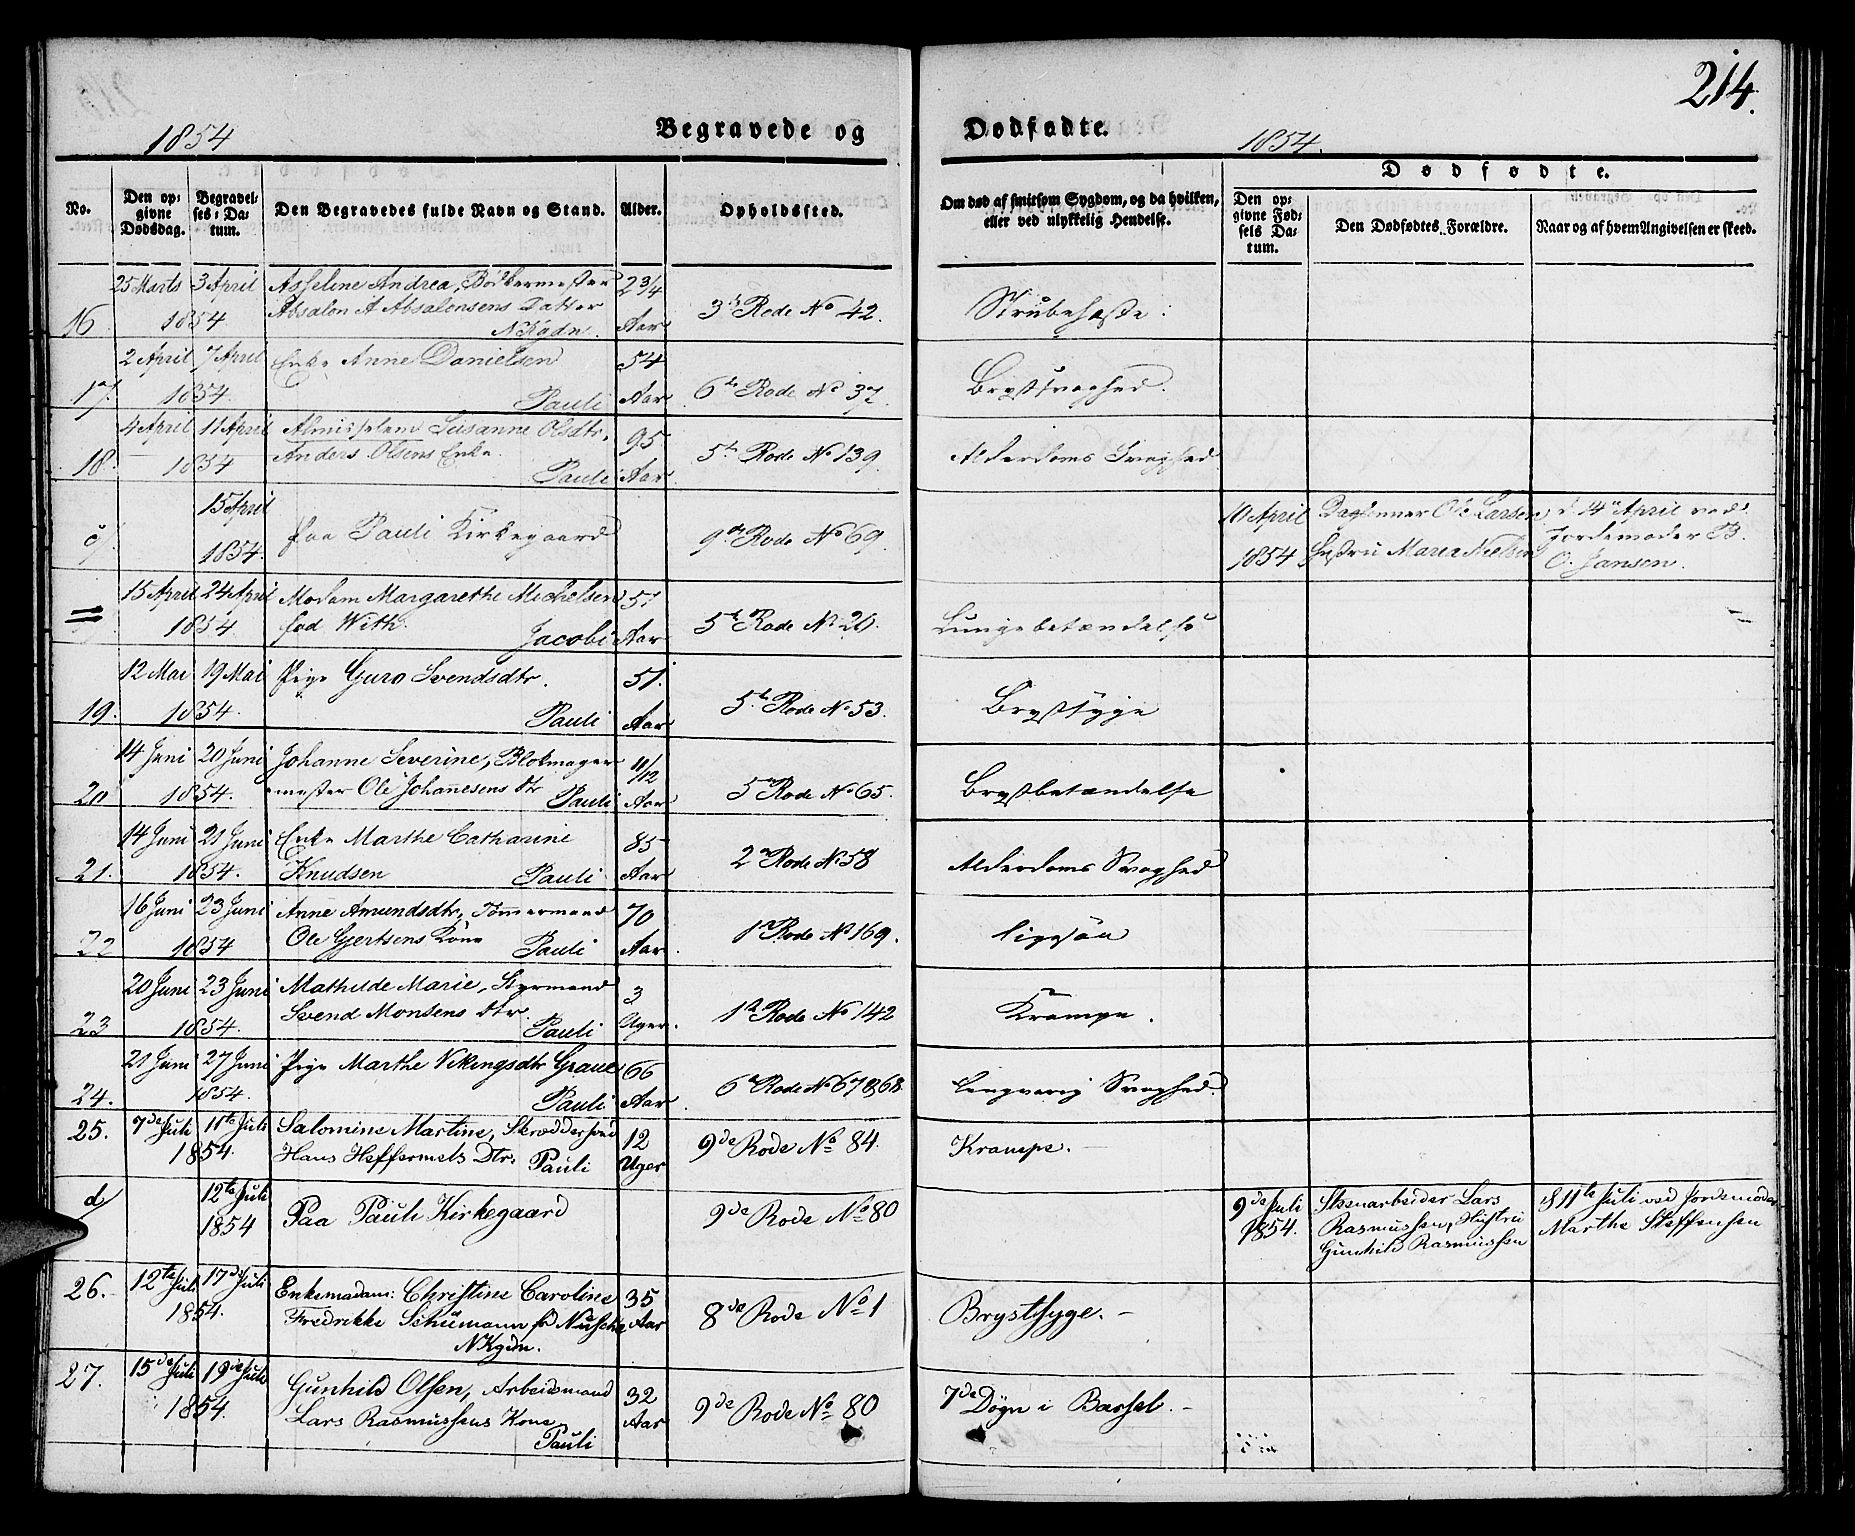 214.
1854
Begravede og
Dødfødte.
1854.
No.
Den opgivne Dødsdag.
Begravelses-Datum.
Den Begravedes fulde Navn og Stand.
Alder.
Opholdssted.
Om død af smitsom Sygdom, og da hvilken, eller ved ulykkelig Hendelse.
Dødfødte.
Den opgivne Fødsels Datum.
Den Dødfødtes Forældre.
Naar og af hvem Angivelsen er skeed.
16 25 Marts 3 April Asseline Andrea, Bødkermester 2 3/4
1854 Absalon A Absalonsens Datter Aar 3de Rode No 42. Strubehoste
NKgdn.
2 April 7 April Enke Anne Danielsen 54
17. 1854. Pauli Aar 6te Rode No 37. Brystsvaghed.
4 April 11 April Susanne Olsdtr. 95
18. 1854 Anders Olsens Enke Pauli Aar 5te Rode No 139 Alderdoms Svaghed
15 April 10 April Dagleinner Ole Larsen d 14 April ved
c/ 1854. Paa Pauli Kirkegaard 9de Rode No 69. 1854 Hustru Maren Nielsen Jordemoder B.
O. Jansen.
15 April 24 April Madam Margarethe Michelsen 51
= 1854 fød With. Jacobi Aar 5te Rode No 20. Lungebetændelse =
12 Mai 19 Mai Pige Guro Svendsdtr. 51.
19. 1854. Pauli Aar 5te Rode No 53. Brystsyge
14 Juni 20 Juni Johanne Severine, Blokmager 11/12
20 1854. mester Ole Johanesens dtr Pauli Aar 5 Rode No 65. Brystbetændelse
14 Juni 21 Juni Enke Marthe Catharine 85
21. 1854. Knudsen Pauli Aar 2 Rode No 58 Alderdoms Svaghed
16 Juni 23 Juni Anne Amundsdtr, Tømmermand 70
22 1854 Ole Gjertsens Kone Pauli Aar 1 Rode No 169. ligesaa
20 Juni 23 Juni Mathilde Marie, Styrmand 3
23 1854. Svend Monsens dtr. Pauli Uger. 1te Rode No 142 Krampe.
21 Juni 27 Juni Pige Marthe Vikingsdtr Graue 66
24. 1854. Pauli Aar 6 Rode No 67&68. Langvarig Svaghed.
25. 7de Juli 11te Juli Salomine Martine, Skræddersvend 12 9de Rode No 84. Krampe.
1854. Hans Heffermels Dtr. Pauli Uger
d/ 12te Juli Paa Pauli Kirkegaard 9de Rode No 80 9de Juli Steenarbeider Lars d 11te Juli ved Jordemoder
1854 1854. Rasmussen, Hustru Marthe Steffensen
Gunhild Rasmussen
26. 12te Juli 17de Juli Enkemadam: Christine Caroline 35
1854. Fredrikke Schümann fd Aar 8de Rode No 1 Brystsyge.
NKgdn.
27. 15de Juli 19de Juli Gunhild Olsen, Arbeidsmand 32
1854. Lars Rasmussens Kone Aar 9de Rode No 80 7de Døgn i Barsel.
Pauli